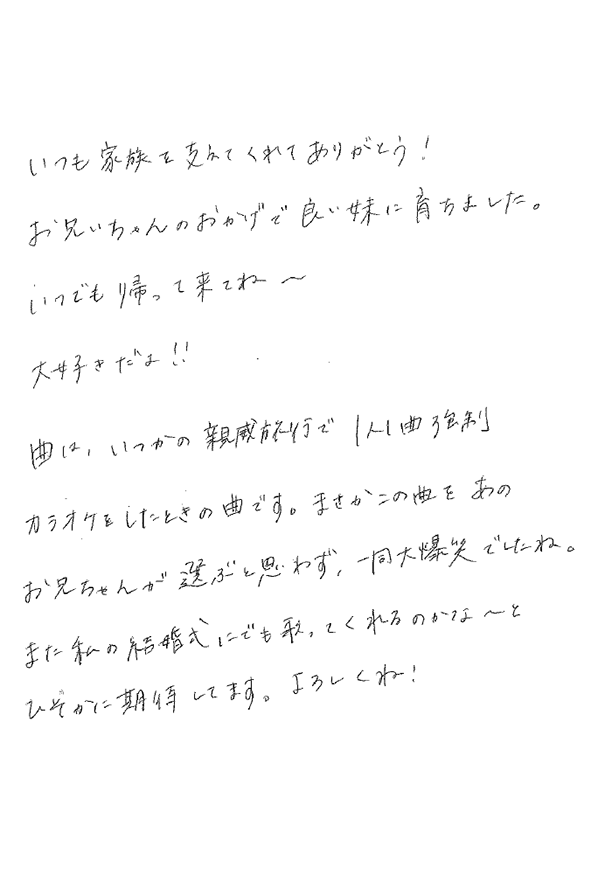 いつも家族を支えてくれてありがとう！
お兄いちゃんのおかげで良い妹に育ちました。
いつでも帰って来てね〜
大好きだよ!!
曲は、いつかの親戚旅行で「1人1曲強制」
カラオケをしたときの曲です。まさかこの曲をあの
お兄ちゃんが選ぶと思わず、一同大爆笑でしたね。
また私の結婚式にでも歌ってくれるのかな〜と
ひそかに期待してます。よろしくね！